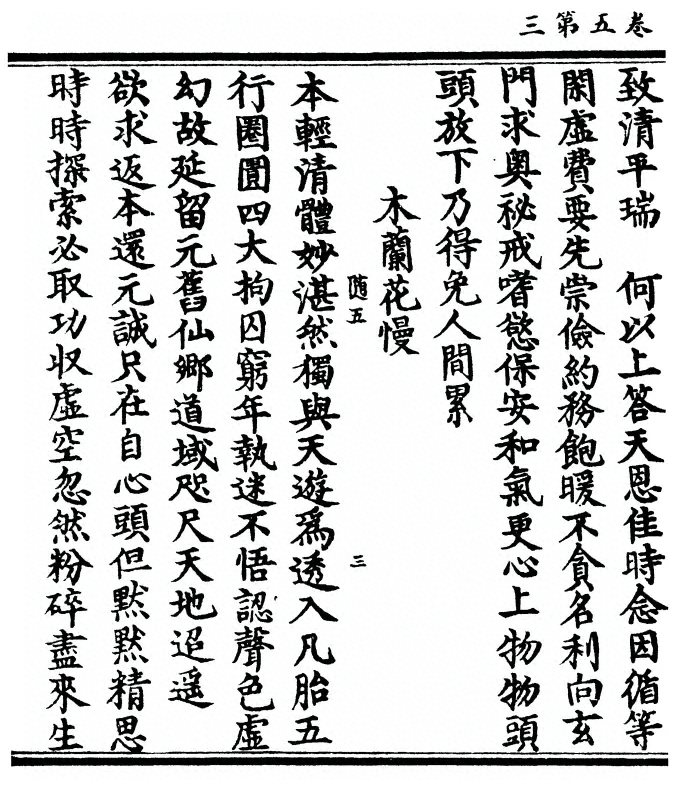 卷五第三
致清平瑞　何以上答天恩佳時念因循等
閑虛費要先崇儉約務飽暖不貪名利向玄
門求奧祕戒嗜慾保安和氣更心上物物頭
頭放下乃得免人間累
木蘭花慢
随五
三
本輕清體妙湛然獨與天遊爲透入凡胎五
行圈圚四大拘囚窮年執迷不悟認聲色虛
幻故延留元舊仙鄉道域咫尺天地迢遥
欲求返本還元誠只在自心頭但默默精思
時時探索必取功収虛空忽然粉碎盡來生